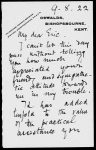 9. 8. 22
OSWALDS,
BISHOPSBOURNE,
KENT.
My dear Eric.
I can't let the day
pass without telling
you how much I
appreciated your
friendly and sympathe-
tic attitude in my
trouble.
It has added
to the value
of the practical
assistance you